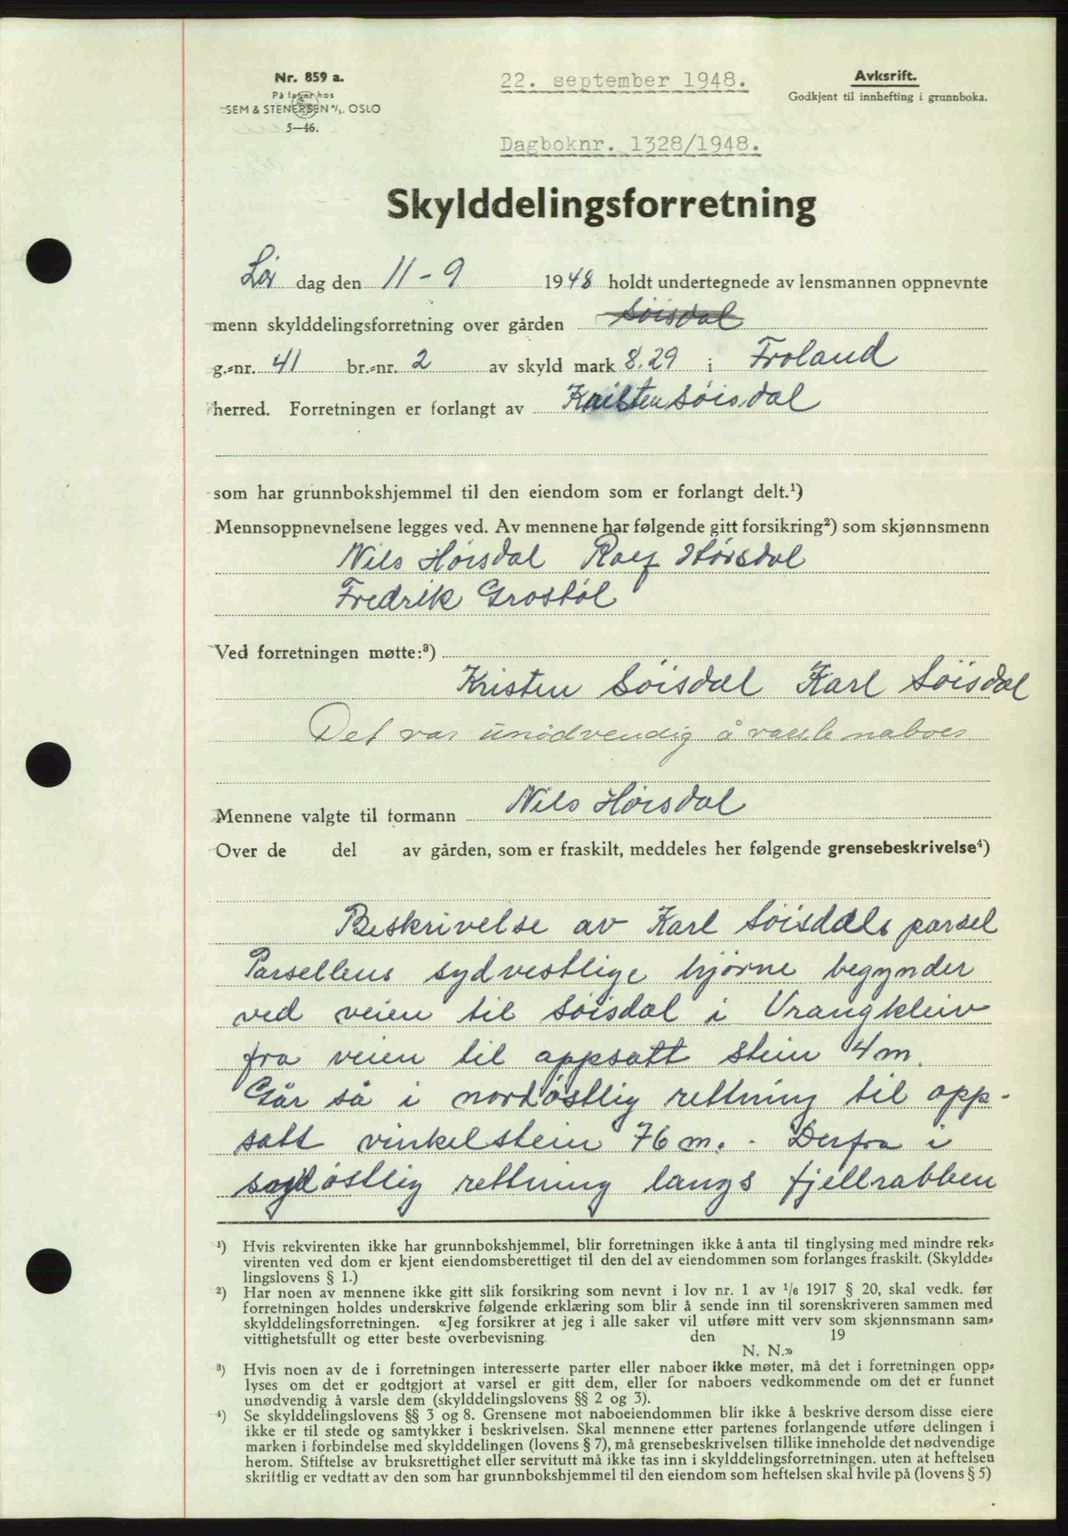 Nr. 859 a.
På lager hos
SEM & STENERSEN A/S. OSLO
5—46.
22. september 1948.
Dagboknr. 1328/1948.
Avksrift.
Godkjent til innhefting i grunnboka.
Skylddelingsforretning
Lør dag den 11-9 1948 holdt undertegnede av lensmannen oppnevnte
menn skylddelingsforretning over gården Søisdal
g.=nr. 41 br.=nr. 2 av skyld mark 8,29 i Froland
herred. Forretningen er forlangt av Kristen Søisdal
som har grunnbokshjemmel til den eiendom som er forlangt delt.¹)
Mennsoppnevnelsene legges ved. Av mennene har følgende gitt forsikring²) som skjønnsmenn
Nils Høisdal Rolf Høisdal
Fredrik Grostøl
Ved forretningen møtte:³)
Kristen Søisdal Karl Søisdal
Det var unødvendig å varsle naboer
Mennene valgte til formann Nils Høisdal
Over de del av gården, som er fraskilt, meddeles her følgende grensebeskrivelse⁴)
Beskrivelse av Karl Søisdals parsel
Parsellens sydvestlige hjørne begynder
ved veien til Søisdal i Vrangkleiv
fra veien til oppsatt stein 4 m.
Går så i nordøstlig rettning til opp-
satt vinkelstein 76 m. - Derfra i
sydøstlig rettning langs fjellrabben
¹) Hvis rekvirenten ikke har grunnbokshjemmel, blir forretningen ikke å anta til tinglysing med mindre rek=
virenten ved dom er kjent eiendomsberettiget til den del av eiendommen som forlanges fraskilt. (Skyldde=
lingslovens § 1.)
²) Har noen av mennene ikke gitt slik forsikring som nevnt i lov nr. 1 av ¹/₆ 1917 § 20, skal vedk. før
forretningen holdes underskrive følgende erklæring som blir å sende inn til sorenskriveren sammen med
skylddelingsforretningen. «Jeg forsikrer at jeg i alle saker vil utføre mitt verv som skjønnsmann sam=
vittighetsfullt og etter beste overbevisning. den 19
N. N.»
³) Hvis noen av de i forretningen interesserte parter eller naboer ikke møter, må det i forretningen opp=
lyses om det er godtgjort at varsel er gitt dem, eller for naboers vedkommende om det er funnet
unødvendig å varsle dem (skylddelingslovens §§ 2 og 3).
⁴) Se skylddelingslovens §§ 3 og 8. Grensene mot naboeiendommen blir ikke å beskrive dersom disse eiere
ikke er til stede og samtykker i beskrivelsen. Skal mennene etter partenes forlangende utføre delingen i
marken i forbindelse med skylddelingen (lovens § 7), må grensebeskrivelsen tillike inneholde det nødvendige
herom. Stiftelse av bruksrettighet eller servitutt må ikke tas inn i skylddelingsforretningen. uten at heftelsen
skriftlig er vedtatt av den som har grunnbokshjemmel til den eiendom som heftelsen skal hvile på (lovens § 5)